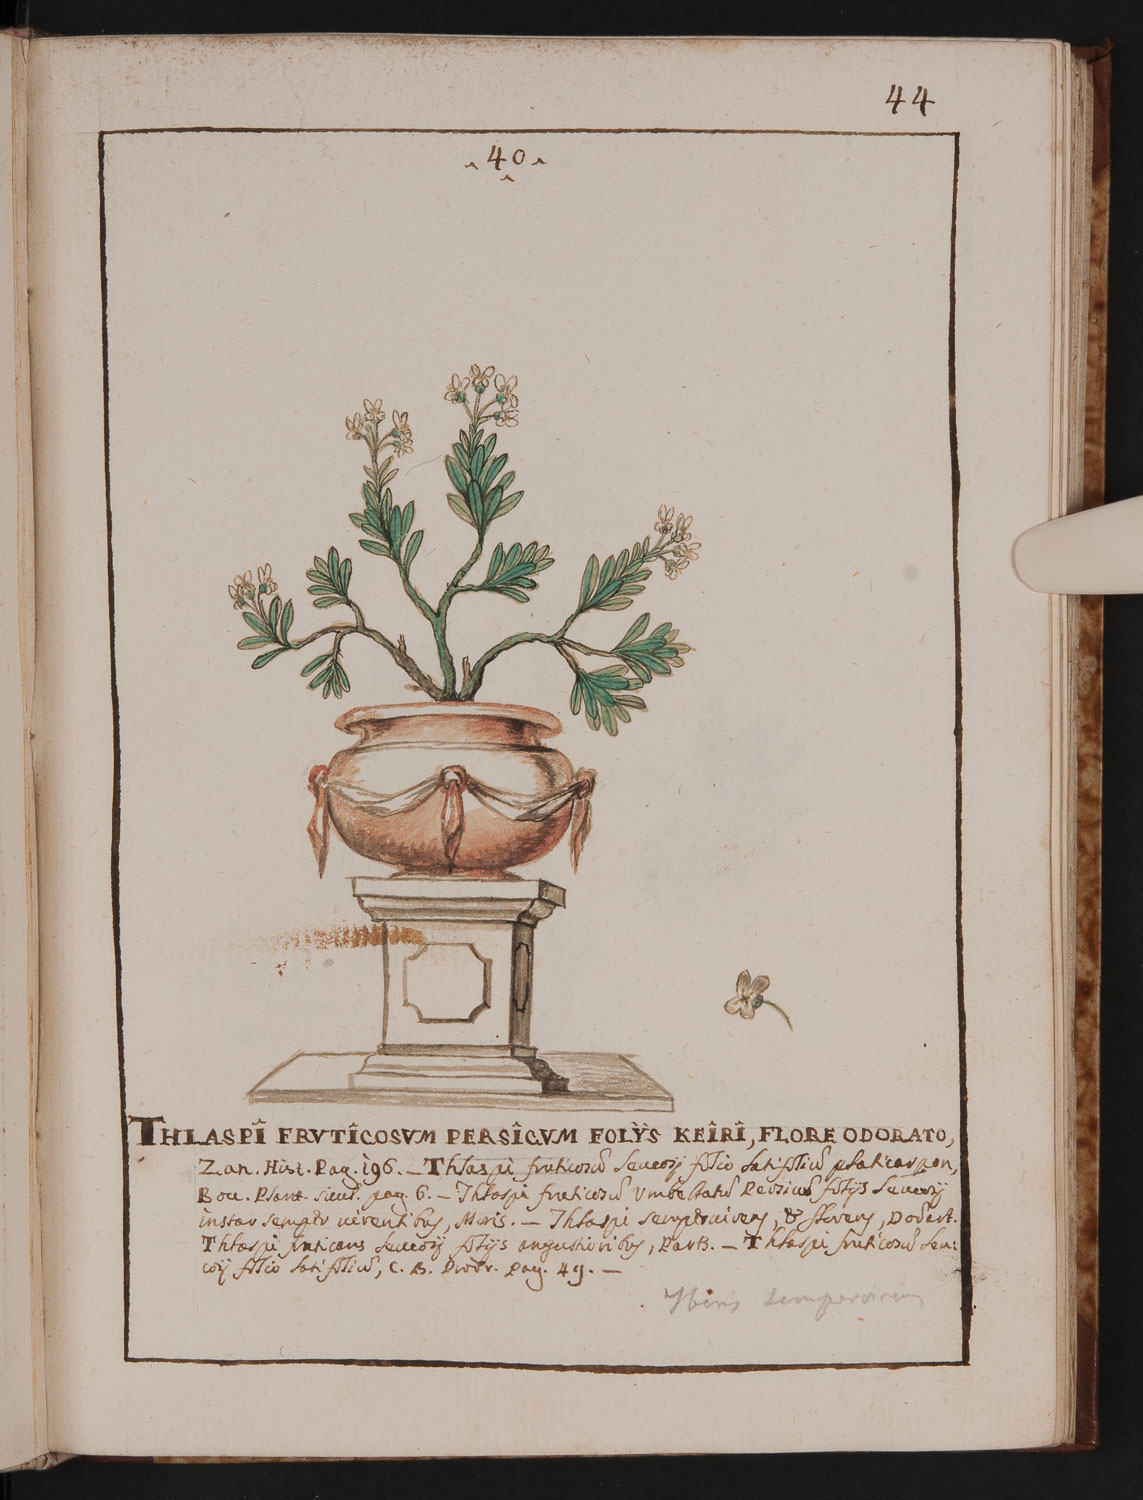 44
40
THLASPÎ FRVTÎCOSVM PERSÎCVM FOLÿS KEÎRÎ, FLORE ODORATO,
Zan. Hist. Pag. 196. — Thlaspi fruticosū leucoij folio latifoliū platicarpon,
Boc. Plant. sicul. pag. 6. — Thlaspi fruticosū Umbellatū Persicū folijs leucoij
instar semper virentibus, Moris. — Thlaspi semperuirens, & florens, Dodart.
Thlaspi fruticans leucoij folijs angustioribus, Park. — Thlaspi fruticosū leu:
coij folio latifoliū, C. B. Prodr. pag. 49. —
Iberis sempervirens